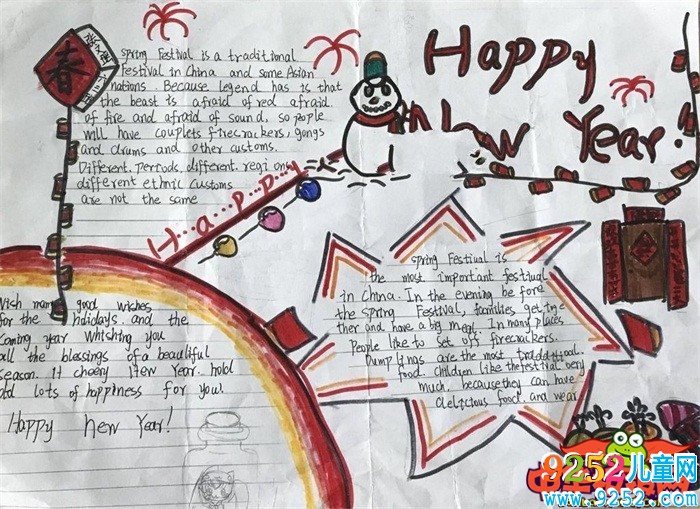 Happy
New
Year.
春
Spring Festival is a traditional
festival in China and some Asian
nations. Because legend has is that
the beast is afraid of red afraid
of fire and afraid of sound, so people
will have couplets firecrackers, gongs
and drums and other customs.
Different. periods. different. regions
different ethnic customs
are not the same
H...a...p...p...y
Spring Festival is
the most important festival
in China. In the evening be fore
the Spring Festival, families get toge
ther and have a big meal. In many places
People like to set off firecrackers.
Dumplings are the most traditional
food. Children like the festival very
much, because they can have
delicious food and wear
Wish many good wishes
for the holidays and the
coming year Whishing you
all the blessings of a beautiful
season. It cheery New Year. hold
lots of happiness for you!
Happy new Year!
9252儿童网
www.9252.com